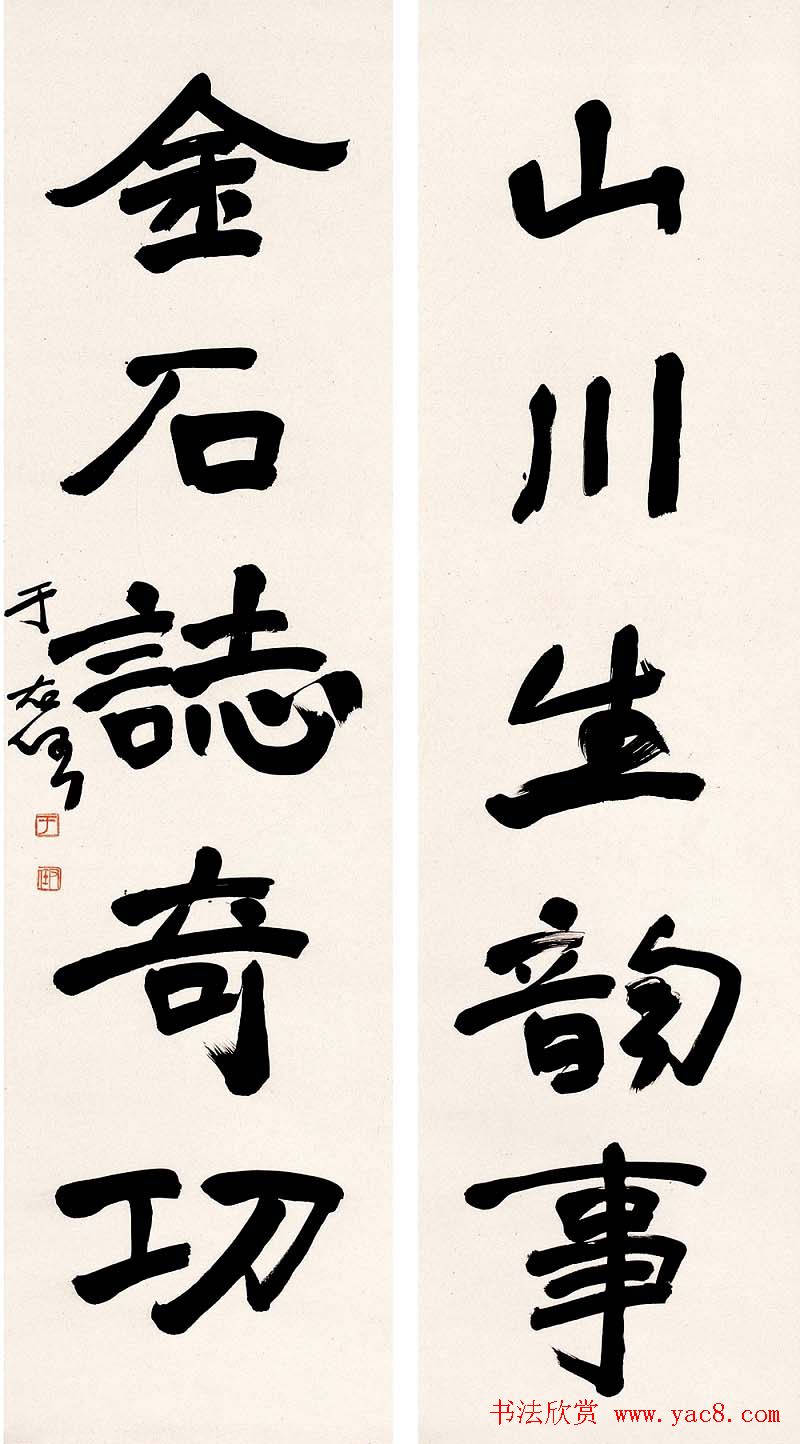 山川生韵事
金石誌奇功
于右任
于
书法欣赏 www.yac8.com